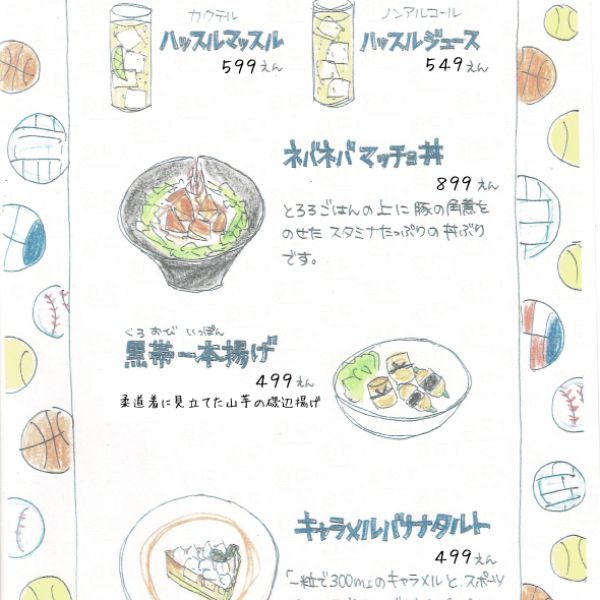 カクテル
ハッスルマッスル
599えん
ノンアルコール
ハッスルジュース
549えん
ネバネバマッチョ丼
899えん
とろろごはんの上に豚の角煮を
のせたスタミナたっぷりの丼ぶり
です。
くろおび いっぽん
黒帯一本揚げ
499えん
柔道着に見立てた山芋の磯辺揚げ
キャラメルバナナタルト
499えん
「一粒で300m」のキャラメルと、スポーツ